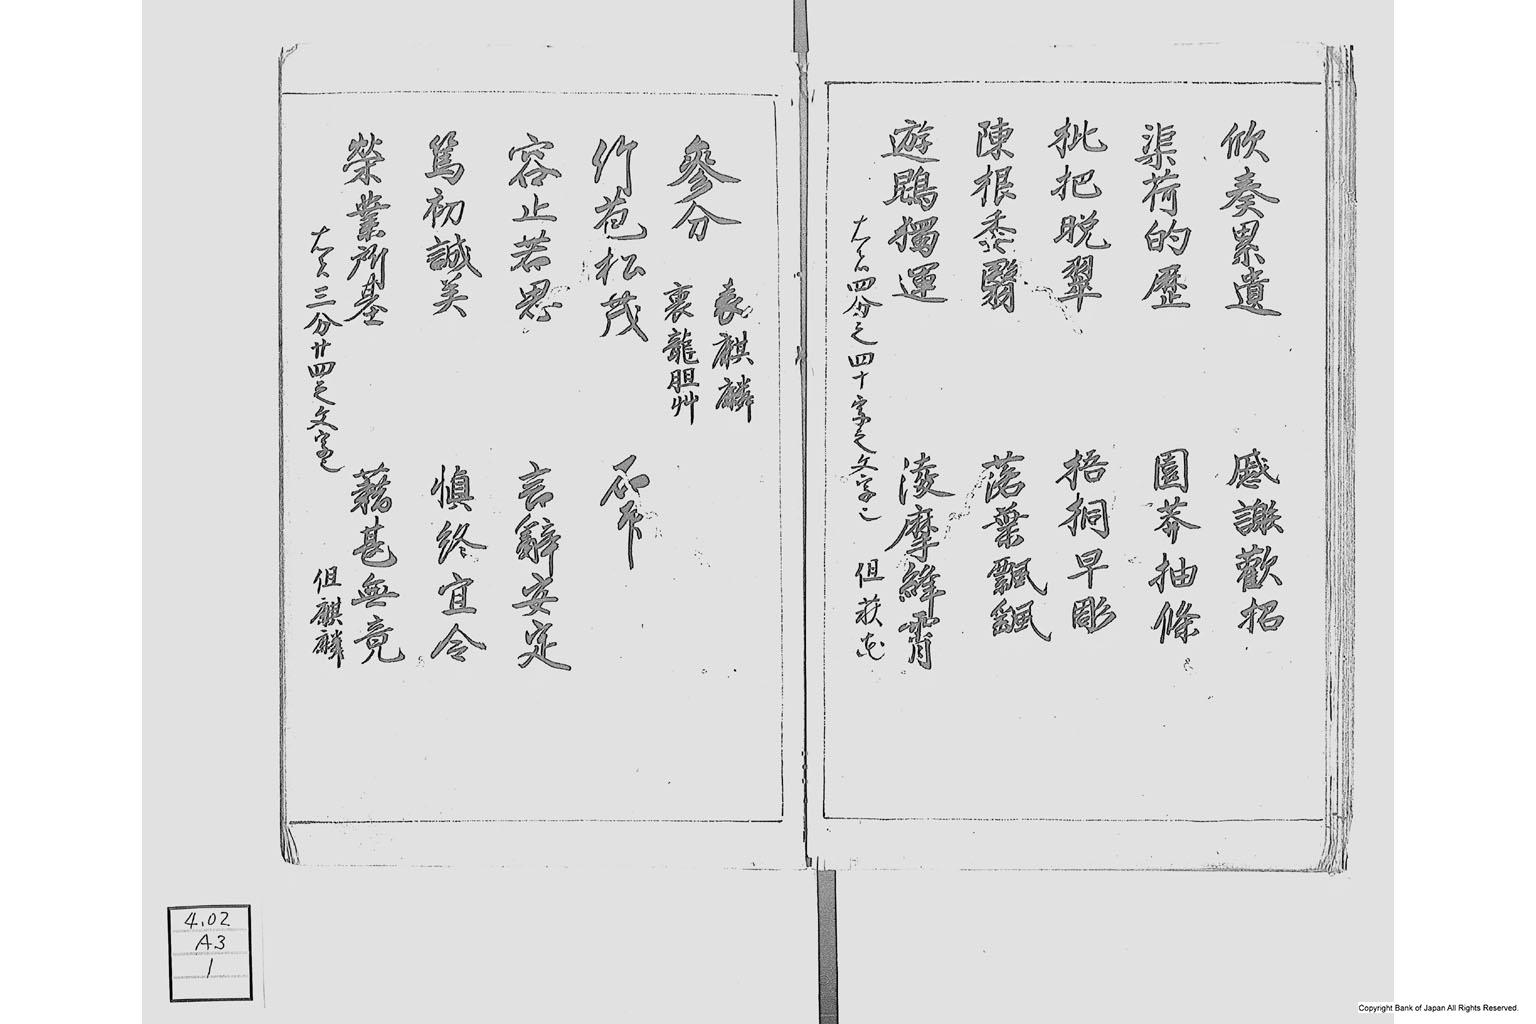 欣奏累遣　慼謝歡招
渠荷的歷　園莽抽條
枇把晩翠　梧桐早彫
陳根委翳　落葉飄飖
遊鵾獨運　淩摩絳霄
右者四分之四十字之文字也　但荻花
參分
表麒麟
裏龍胆艸
竹苞松茂
容止若思　言辭安定
篤初誠美　慎終宜令
榮業所基　藉甚無竟
右之三分廿四之文字也　但麒麟
4.02
A3
1
Copyright Bank of Japan All Rights Reserved.